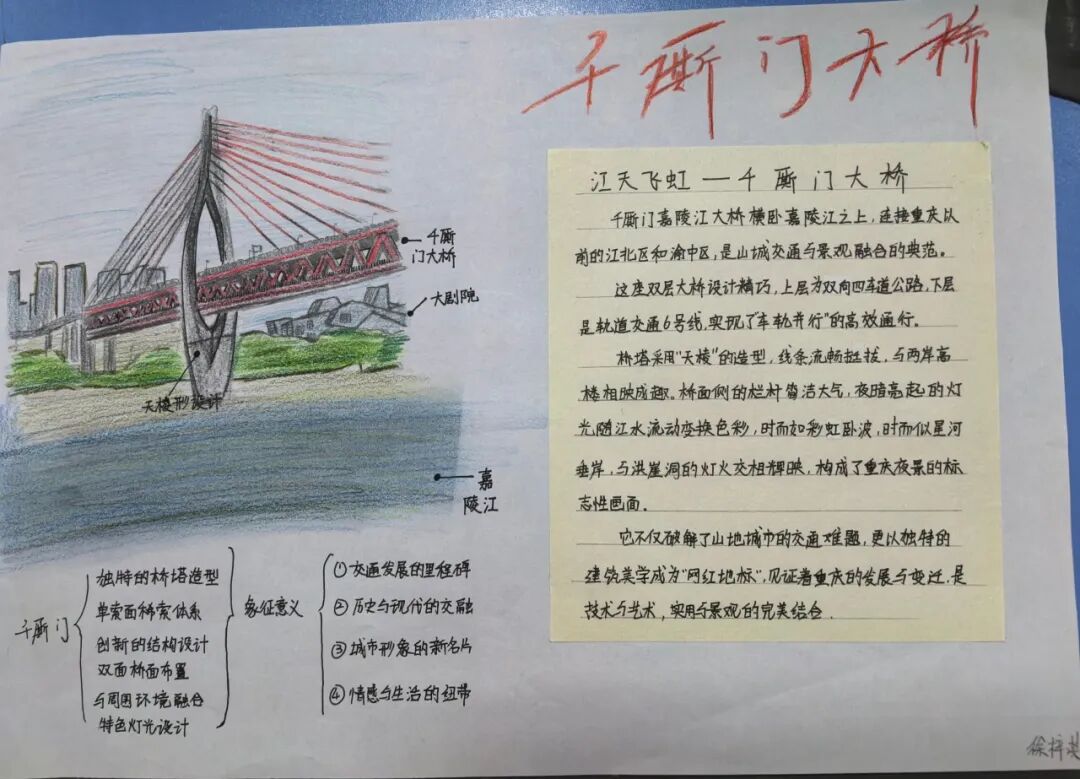 千厮门大桥
江天飞虹—千厮门大桥
千厮门嘉陵江大桥横卧嘉陵江之上,连接重庆以
前的江北区和渝中区,是山城交通与景观融合的典范。
这座双层大桥设计精巧,上层为双向四车道公路,下层
是轨道交通6号线,实现了"车轨并行"的高效通行。
桥塔采用"天梭"的造型,线条流畅挺拔,与两岸高
楼相映成趣。桥面侧的栏杆简洁大气,夜暗亮起的灯
光随江水流动变换色彩,时而如彩虹卧波,时而似星河
垂岸,与洪崖洞的灯火交相辉映,构成了重庆夜景的标
志性画面。
它不仅破解了山地城市的交通难题,更以独特的
建筑美学成为"网红地标",见证着重庆的发展与变迁,是
技术与艺术,实用与景观的完美结合.
千厮
门大桥
大剧院
天梭形设计
嘉
陵江
千厮门
独特的桥塔造型
单索面稀索体系
创新的结构设计
双面桥面布置
与周围环境融合
特色灯光设计
象征意义
① 交通发展的里程碑
② 历史与现代的交融
③ 城市形象的新名片
④ 情感与生活的纽带
徐梓